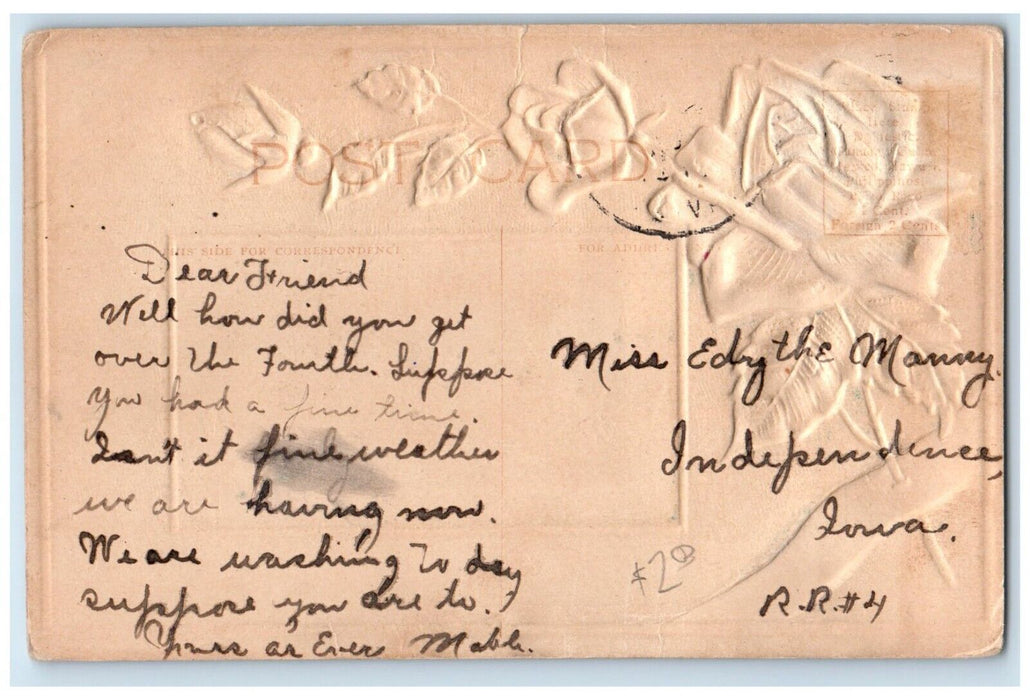 POST CARD
THIS SIDE FOR CORRESPONDENCE
FOR ADDRESS
Foreign 2 Cents
Dear Friend
Well how did you get
over the Fourth. Suppose
you had a fine time.
Isn't it fine weather
we are having now.
We are washing to day
suppose you are to.
Yours as Ever Mable.
Miss Edythe Manny.
Independence,
Iowa.
R.R.#4
$2